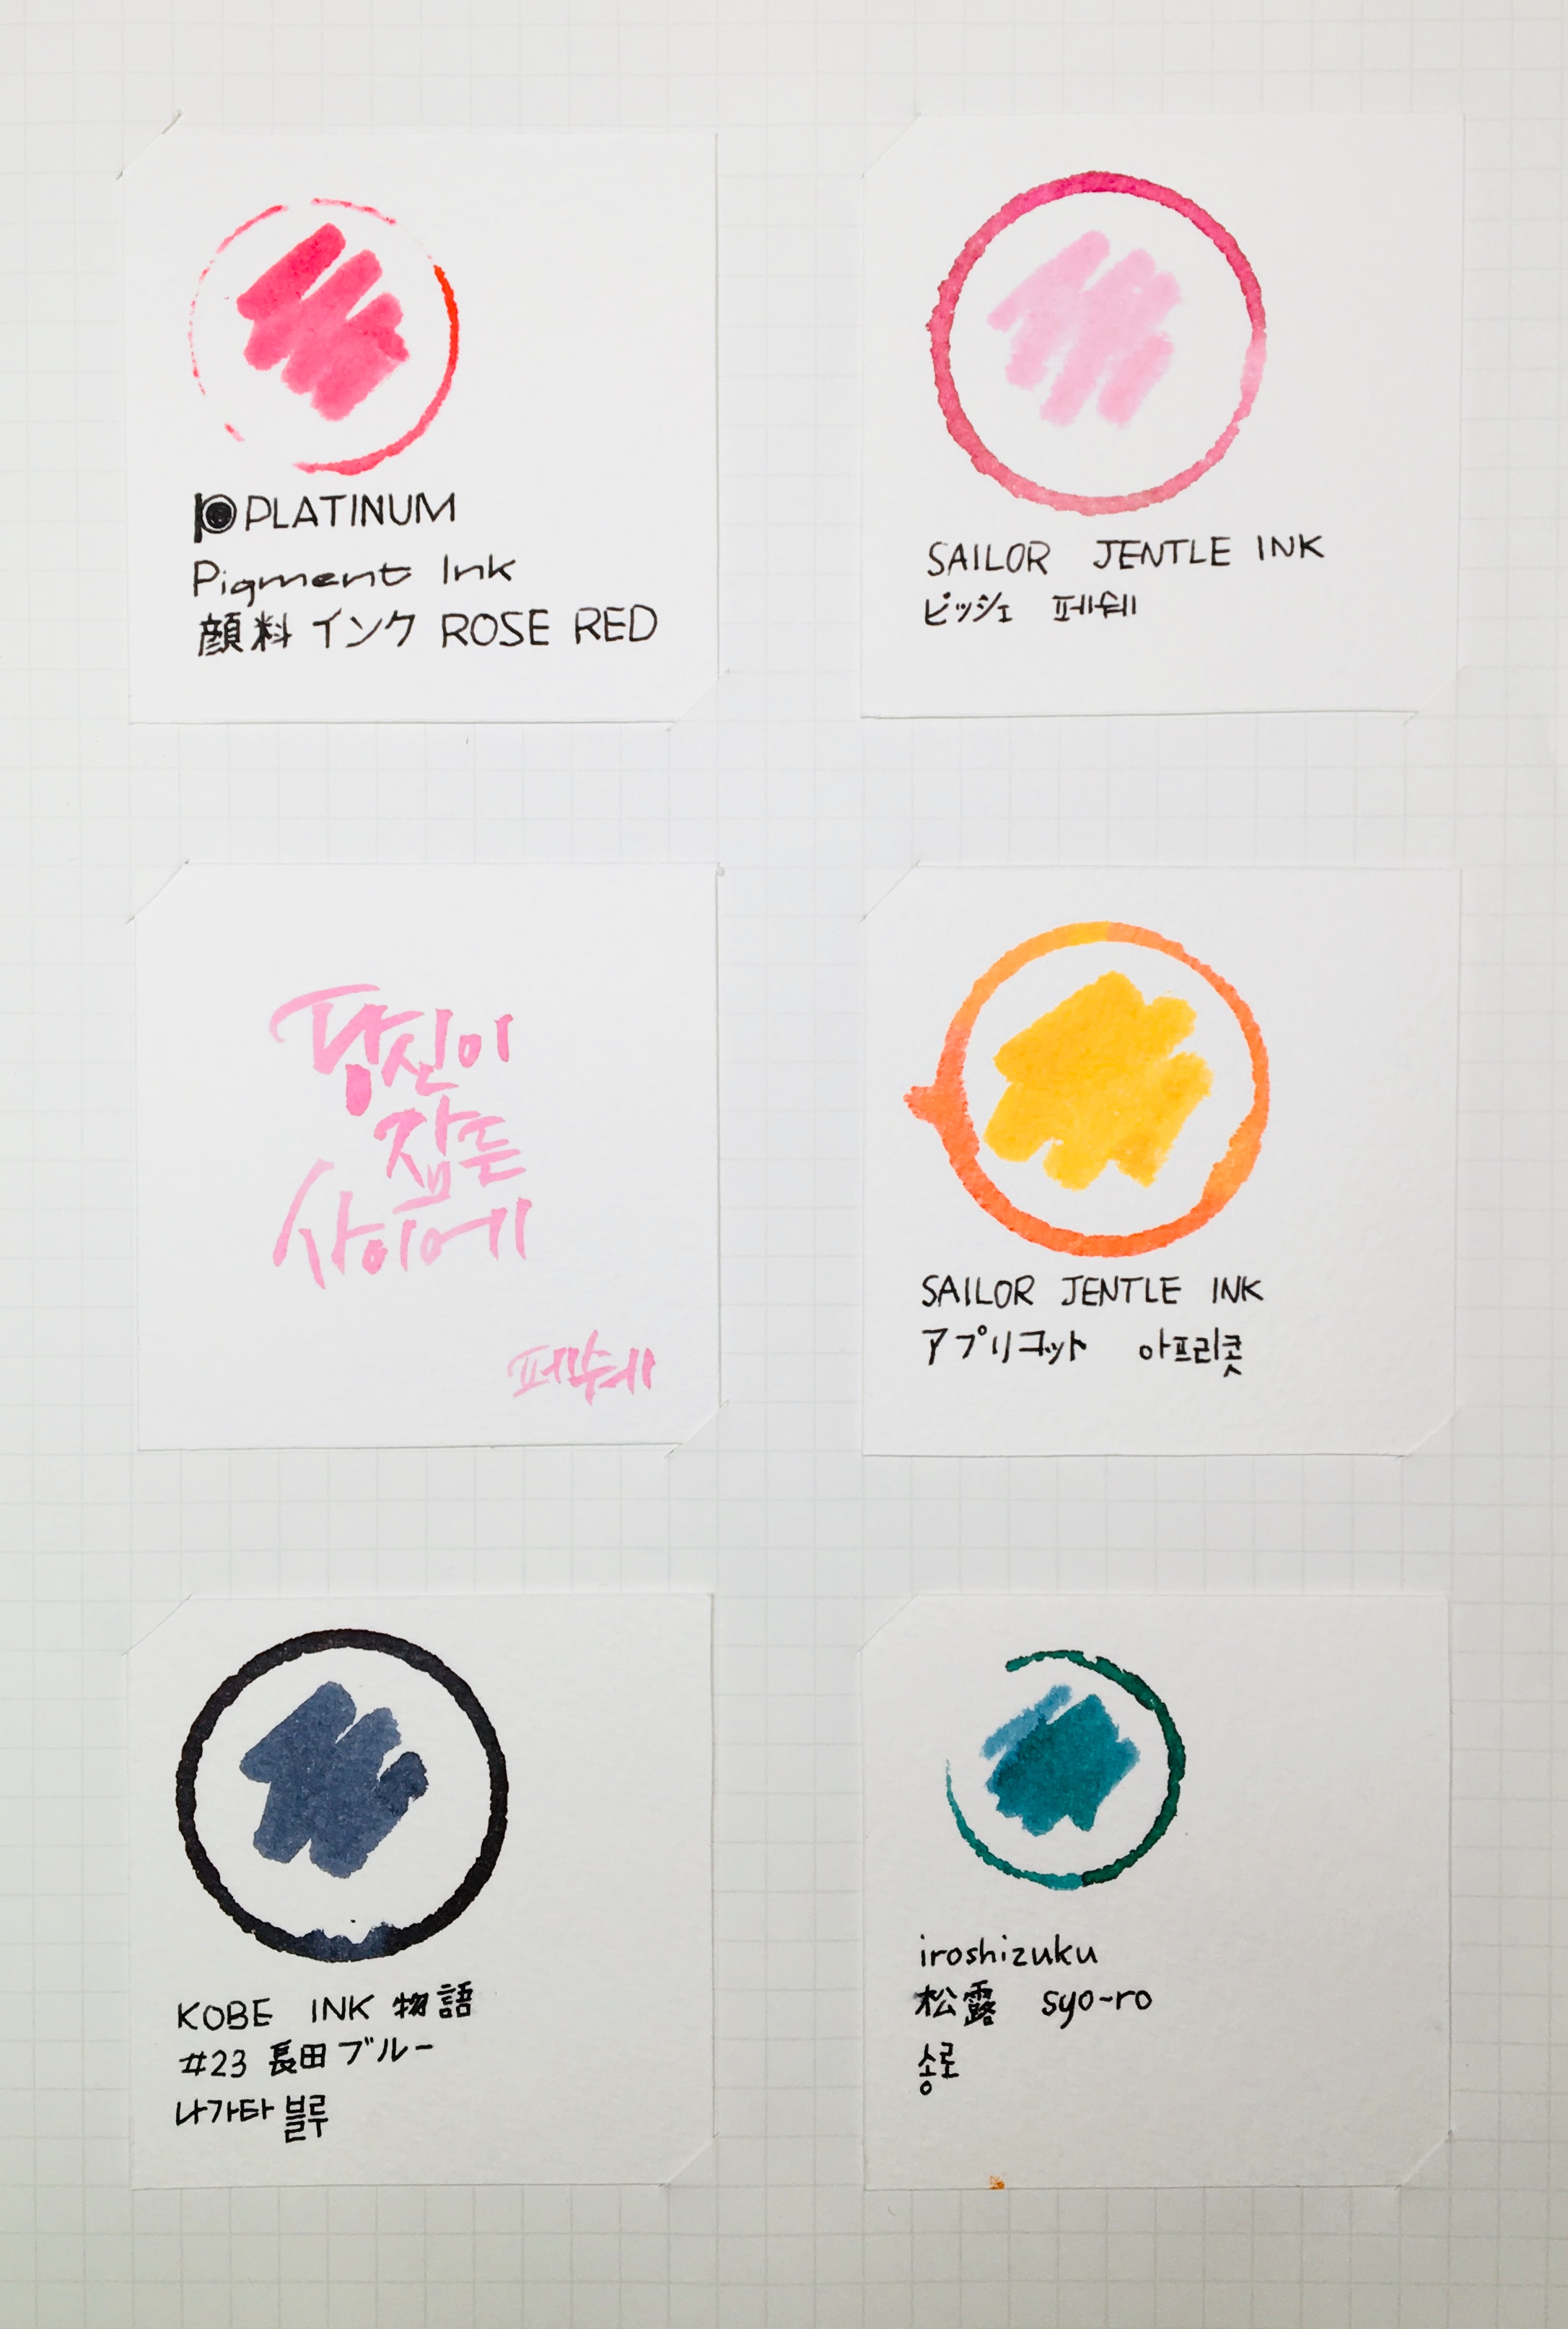 PLATINUM
Pigment Ink
顔料 インク ROSE RED
SAILOR JENTLE INK
ピッシェ 페쉐
당신이
잠든
사이에
SAILOR JENTLE INK
アプリコット 아프리콧
KOBE INK 物語
#23 長田ブルー
나가타 블루
iroshizuku
松露 syo-ro
송로